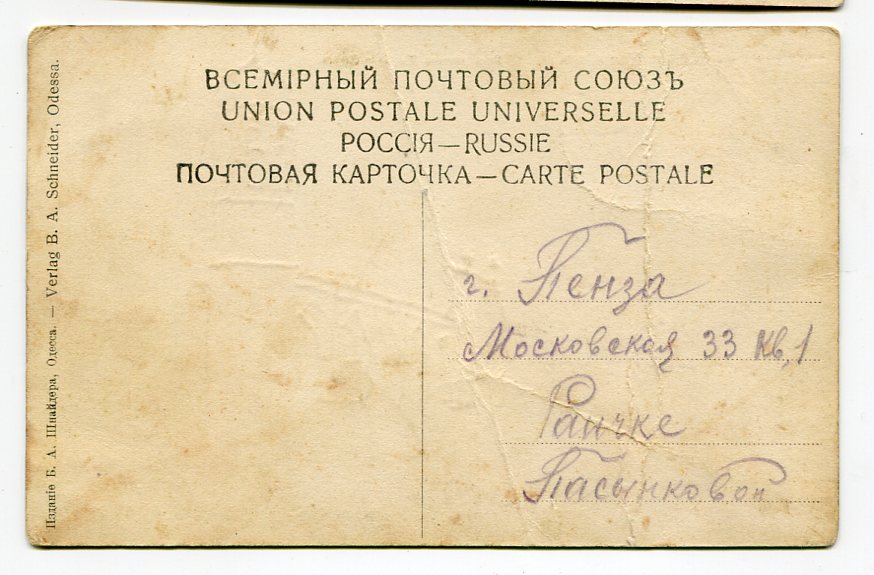 ВСЕМІРНЫЙ ПОЧТОВЫЙ СОЮЗЪ
UNION POSTALE UNIVERSELLE
РОССІЯ—RUSSIE
ПОЧТОВАЯ КАРТОЧКА—CARTE POSTALE
г. Пенза
Московская 33 кв, 1
Раичке
Пасынковой
Изданіе Б. А. Шнайдера, Одесса. — Verlag B. A. Schneider, Odessa.